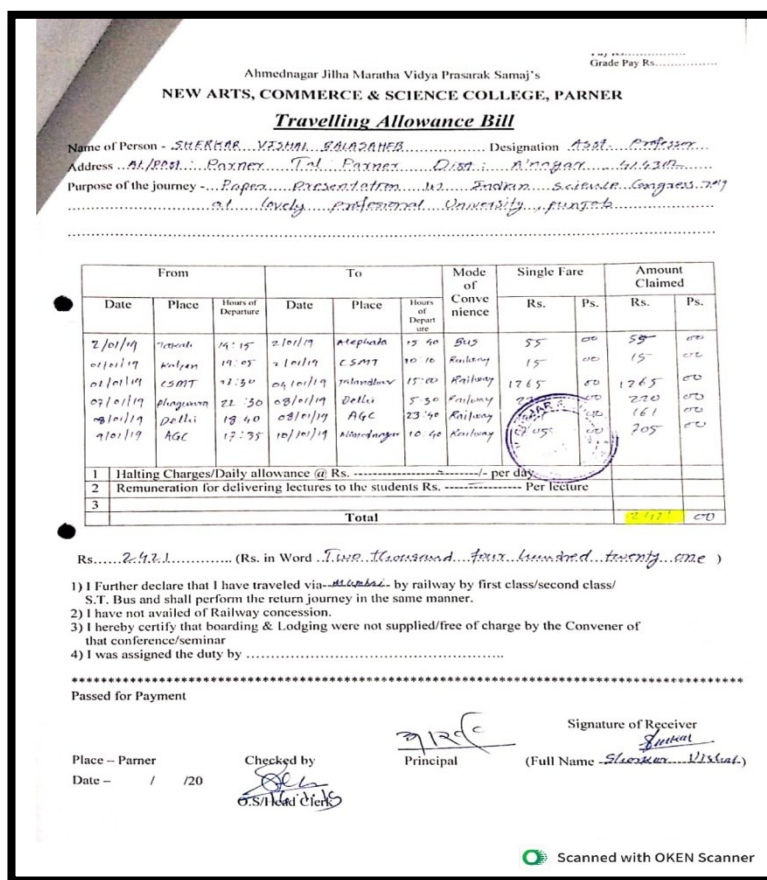 Pay Rs................
Grade Pay Rs................
Ahmednagar Jilha Maratha Vidya Prasarak Samaj's
NEW ARTS, COMMERCE & SCIENCE COLLEGE, PARNER
Travelling Allowance Bill
Name of Person - SHERKAR VISHAL BALASAHEB Designation Asst. Professor
Address At./Post: Parner Tal: Parner Dist: A'nagar 414302
Purpose of the journey - Paper Presentation in Indian science Congress 2019
at lovely profesional University, punjab
From To Mode of Conve nience Single Fare Amount Claimed
Date Place Hours of Departure Date Place Hours of Depart ure Rs. Ps. Rs. Ps.
2/01/19 14:15 2/01/19 Alephata 15 40 Bus 55 00 55 00
Kalyan 19:05 CSMT Railway 15 00 15 00
CSMT 04/01/19 Jalandhar 15:00 Railway 1765 00 1765 00
07/01/19 22:30 08/01/19 Delhi 5 30 Railway 00 220 00
08/01/19 Delhi 18 40 08/01/19 AGC 23 40 Railway 00 161 00
9/01/19 AGC 17:35 10/01/19 Ahmednagar 10 40 Railway 705 00 705 00
1 Halting Charges/Daily allowance @ Rs. ---------------------/- per day
2 Remuneration for delivering lectures to the students Rs. --------------- Per lecture
3
Total 2421 00
Rs.....2421............ (Rs. in Word Two thousand four hundred twenty one )
1) I Further declare that I have traveled via--Mumbai- by railway by first class/second class/
S.T. Bus and shall perform the return journey in the same manner.
2) I have not availed of Railway concession.
3) I hereby certify that boarding & Lodging were not supplied/free of charge by the Convener of
that conference/seminar
4) I was assigned the duty by ......................................................
Passed for Payment
Signature of Receiver
Place – Parner Checked by Principal (Full Name - Sherkar Vishal)
Date – / /20
O.S/Head Clerk
Scanned with OKEN Scanner